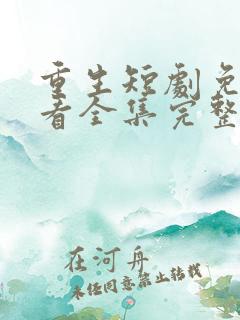 重生短劇免
看全集完整
在河舟
未经同意禁止转载